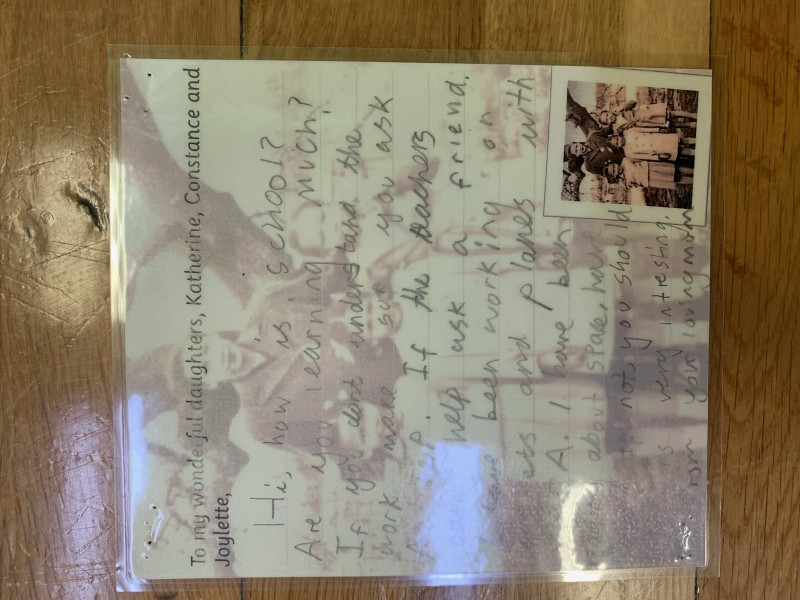 To my wonderful daughters, Katherine, Constance and
Joylette,
Hi, how is school?
Are you learning much?
If you dont understand the
work make sure you ask
If the teachers
help ask a friend.
been working on
ets and planes with
A. I have been
about space, have
not, you should
is very intresting.
you loving mom